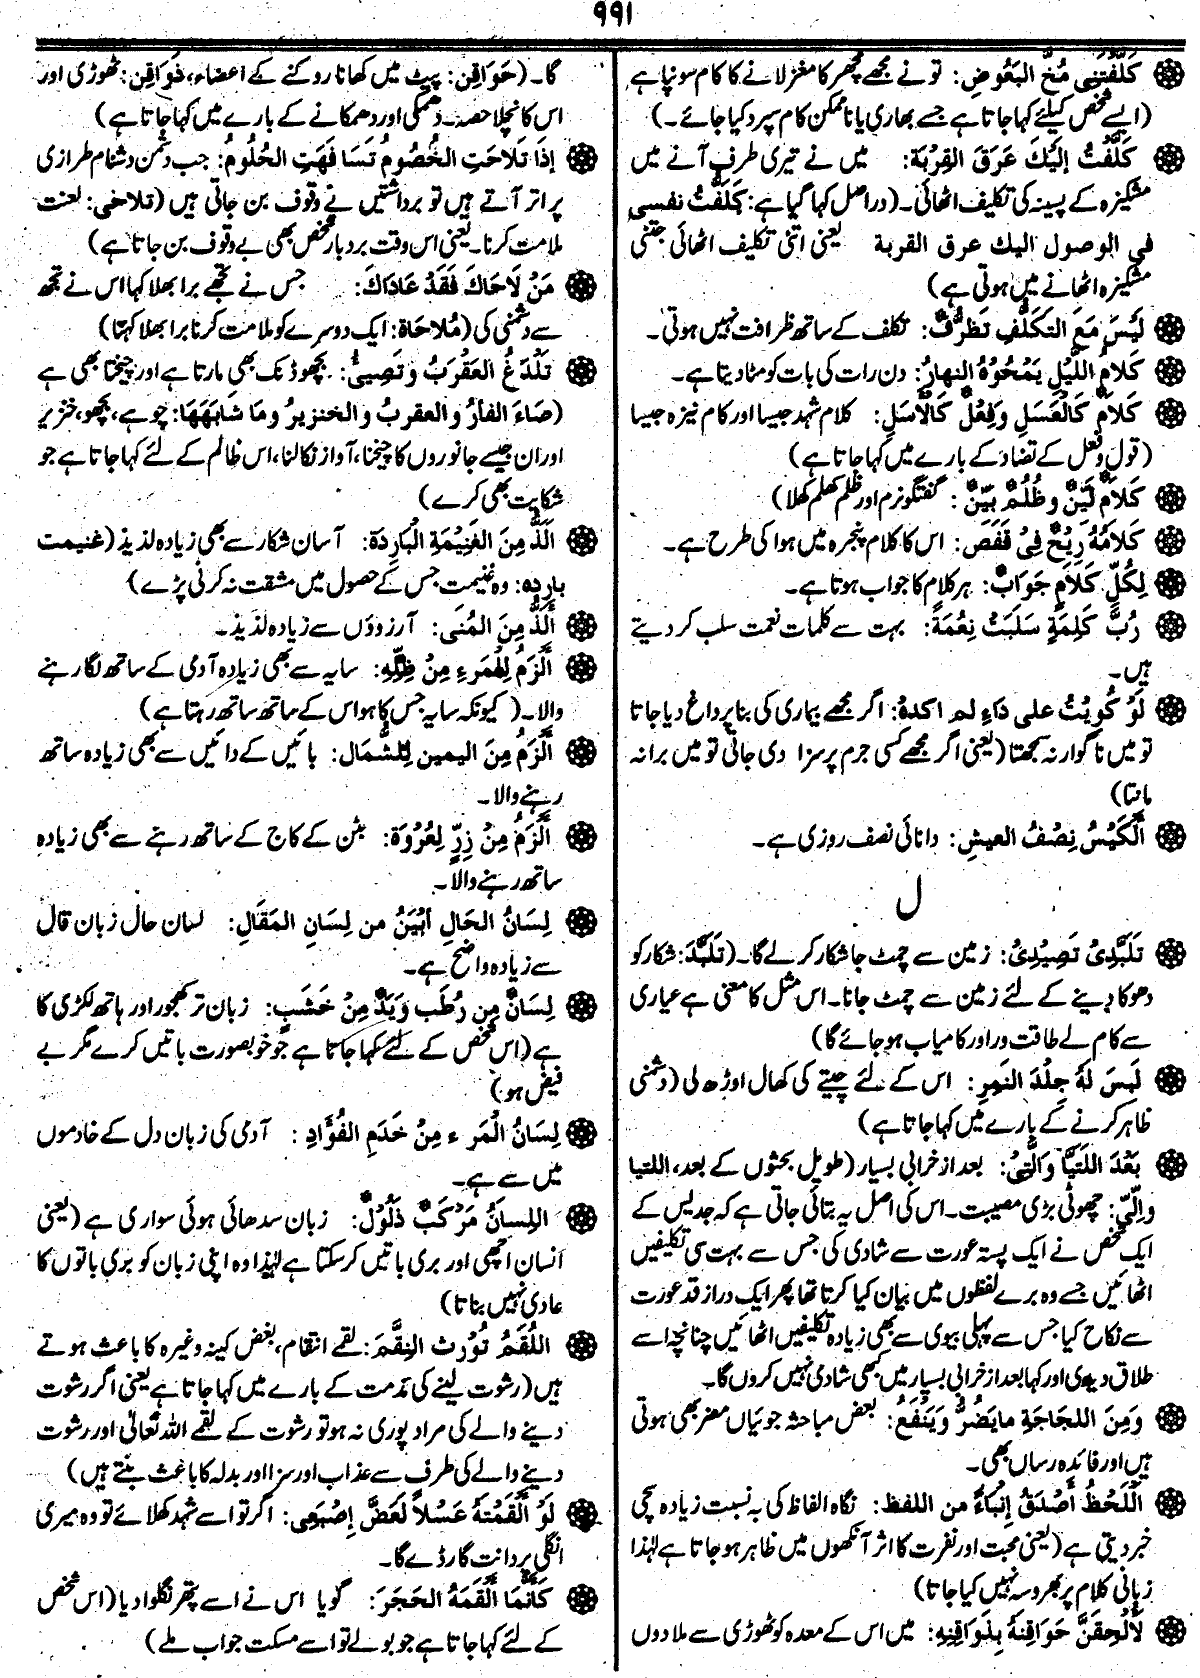 ۹۹۱
كَلَّفْتَنِى مُخَّ البَعُوضِ: تو نے مجھے مچھر کا مغز لانے کا کام سونپا ہے
(ایسے شخص کیلئے کہا جاتا ہے جسے بھاری یا ناممکن کام سپرد کیا جائے۔)
كَلَّفْتُ إلَيْكَ عَرَقَ القِرْبَة: میں نے تیری طرف آنے میں
مشکیزہ کے پسینہ کی تکلیف اٹھائی۔ (دراصل کہا گیا ہے: كَلَّفْتُ نفسى
فى الوصول اليك عرق القربة یعنی اتنی تکلیف اٹھائی جتنی
مشکیزہ اٹھانے میں ہوتی ہے)
لَيْسَ مَعَ التَكَلُّفِ تَظَرُّفٌ: تکلف کے ساتھ ظرافت نہیں ہوتی۔
كَلامُ اللَّيْلِ يَمْحُوْهُ النهارُ: دن رات کی بات کو مٹا دیتا ہے۔
كَلامٌ كَالْعَسَلِ وَفِعْلٌ كَالْأَسَلِ: کلام شہد جیسا اور کام نیزہ جیسا
(قول و فعل کے تضاد کے بارے میں کہا جاتا ہے)
كَلامٌ لَيِّنٌ وظُلُمٌ بَيِّنٌ: گفتگو نرم اور ظلم کھلم کھلا)
كَلامُهُ رِيْحٌ فِىْ قَفَص: اس کا کلام پنجرہ میں ہوا کی طرح ہے۔
لِكُلِّ كَلامٍ جَوَابٌ: ہر کلام کا جواب ہوتا ہے۔
رُبَّ كَلِمَةٍ سَلَبَتْ نِعْمَةً: بہت سے کلمات نعمت سلب کر دیتے
ہیں۔
لَوْ كُوِيْتُ على دَاءٍ لم اكدهْ: اگر مجھے بیماری کی بنا پر داغ دیا جاتا
تو میں ناگوار نہ سمجھتا (یعنی اگر مجھے کسی جرم پر سزا دی جاتی تو میں برا نہ
مانتا)
اَلْكَيْسُ نِصْفُ العيشِ: دانائی نصف روزی ہے۔
ل
تَلَبَّدِىْ تَصِيْدِىْ: زمین سے چمٹ جا شکار کر لے گا۔ (تَلَبَّدَ: شکار کو
دھوکا دینے کے لئے زمین سے چمٹ جانا۔ اس مثل کا معنی ہے عیاری
سے کام لے طاقت ور اور کامیاب ہو جائے گا)
لَبِسَ لَهُ جِلْدَ النَمِرِ: اس کے لئے چیتے کی کھال اوڑھ لی (دشمنی
ظاہر کرنے کے بارے میں کہا جاتا ہے)
بَعْدَ اللَتَيَّا وَالَّتِىْ: بعد از خرابی بسیار (طویل بحثوں کے بعد، اللتیا
والّتی: چھوٹی بڑی مصیبت۔ اس کی اصل یہ بتائی جاتی ہے کہ جدیس کے
ایک شخص نے ایک پستہ عورت سے شادی کی جس سے بہت سی تکلیفیں
اٹھائیں جسے وہ برے لفظوں میں بیان کیا کرتا تھا پھر ایک دراز قد عورت
سے نکاح کیا جس سے پہلی بیوی سے بھی زیادہ تکلیفیں اٹھائیں چنانچہ اسے
طلاق دیدی اور کہا بعد از خرابی بسیار میں کبھی شادی نہیں کروں گا۔
وَمِنَ اللجَاجَةِ مايَضُرُّ وَيَنْفَعُ: بعض مباحثہ جوئیاں مضر بھی ہوتی
ہیں اور فائدہ رساں بھی۔
اَللَّحْظُ أَصْدَقُ إِنْبَاءً من اللفظ: نگاہ الفاظ کی بہ نسبت زیادہ سچی
خبر دیتی ہے (یعنی محبت اور نفرت کا اثر آنکھوں میں ظاہر ہو جاتا ہے لہٰذا
زبانی کلام پر بھروسہ نہیں کیا جاتا)
لَأُلْحِقَنَّ حَوَاقِنَهُ بِلَوَاقِنِهِ: میں اس کے معدہ کو ٹھوڑی سے ملا دوں
گا۔ (حَوَاقِن: پیٹ میں کھانا روکنے کے اعضاء، ذَوَاقِن: ٹھوڑی اور
اس کا نچلا حصہ۔ دھمکی اور دھمکانے کے بارے میں کہا جاتا ہے)
إِذَا تَلاحَتِ الخُصُومُ تَسَافَهَتِ الحُلُومُ: جب دشمن دشنام طرازی
پر اتر آتے ہیں تو برداشتیں بے وقوف بن جاتی ہیں (تلاحی: لعنت
ملامت کرنا۔ یعنی اس وقت بردبار شخص بھی بے وقوف بن جاتا ہے)
مَنْ لَاحَاكَ فَقَدْ عَادَاكَ: جس نے تجھے برا بھلا کہا اس نے تجھ
سے دشمنی کی (مُلاحَاة: ایک دوسرے کو ملامت کرنا برا بھلا کہنا)
تَلْدَغُ العَقْرَبُ وَتَصِيئُ: بچھو ڈنک بھی مارتا ہے اور چیختا بھی ہے
(صَاءَ الفأرُ و العقربُ و الخنزيرُ وما شَابَهَهَا: چوہے، بچھو، خنزیر
اور ان جیسے جانوروں کا چیخنا، آواز نکالنا، اس ظالم کے لئے کہا جاتا ہے جو
شکایت بھی کرے)
اَلَذُّ مِنَ الغَنِيْمَةِ الْبَارِدَة: آسان شکار سے بھی زیادہ لذیذ (غنیمت
باردہ: وہ غنیمت جس کے حصول میں مشقت نہ کرنی پڑے)
أَلَذُّ مِنَ المُنَى: آرزوؤں سے زیادہ لذیذ۔
اَلْزَمُ لِلْمَرءِ مِنْ ظِلِّهِ: سایہ سے بھی زیادہ آدمی کے ساتھ لگا رہنے
والا۔ (کیونکہ سایہ جس کا ہو اس کے ساتھ ساتھ رہتا ہے)
اَلْزَمُ مِنَ اليمين لِلشِّمَال: بائیں کے دائیں سے بھی زیادہ ساتھ
رہنے والا۔
اَلْزَمُ مِنْ زِرٍّ لِعُرْوَة: بٹن کے کاج کے ساتھ رہنے سے بھی زیادہ
ساتھ رہنے والا۔
لِسَانُ الحَالِ أَبْيَنُ من لِسَانِ المَقَالِ: لسان حال زبان قال
سے زیادہ واضح ہے۔
لِسَانٌ مِن رُطَبٍ وَيَدٌ مِنْ خَشَبٍ: زبان تر کھجور اور ہاتھ لکڑی کا
ہے (اس شخص کے لئے کہا جاتا ہے جو خوبصورت باتیں کرے مگر بے
فیض ہو)
لِسَانُ الْمَرْءِ مِنْ خَدَمِ الفُؤَادِ: آدمی کی زبان دل کے خادموں
میں سے ہے۔
اللِسانُ مَرْكَبٌ ذَلُوْلٌ: زبان سدھائی ہوئی سواری ہے (یعنی
انسان اچھی اور بری باتیں کر سکتا ہے لہٰذا وہ اپنی زبان کو بری باتوں کا
عادی نہیں بناتا)
اللُقَمُ تُوْرِثُ النِقَمَ: لقمے انتقام، بغض کینہ وغیرہ کا باعث ہوتے
ہیں (رشوت لینے کی مذمت کے بارے میں کہا جاتا ہے یعنی اگر رشوت
دینے والے کی مراد پوری نہ ہو تو رشوت کے لقمے اللہ تعالیٰ اور رشوت
دینے والے کی طرف سے عذاب اور سزا اور بدلہ کا باعث بنتے ہیں)
لَوْ أَلْقَمْتَهُ عَسْلاً لَعَضَّ إِصْبَعِى: اگر تو اسے شہد کھلائے تو وہ میری
انگلی پر دانت گاڑ دے گا۔
كَأَنَّمَا أَلْقَمَهُ الحَجَرَ: گویا اس نے اسے پتھر نگلوا دیا (اس شخص
کے لئے کہا جاتا ہے جو بولے تو اسے مسکت جواب ملے)